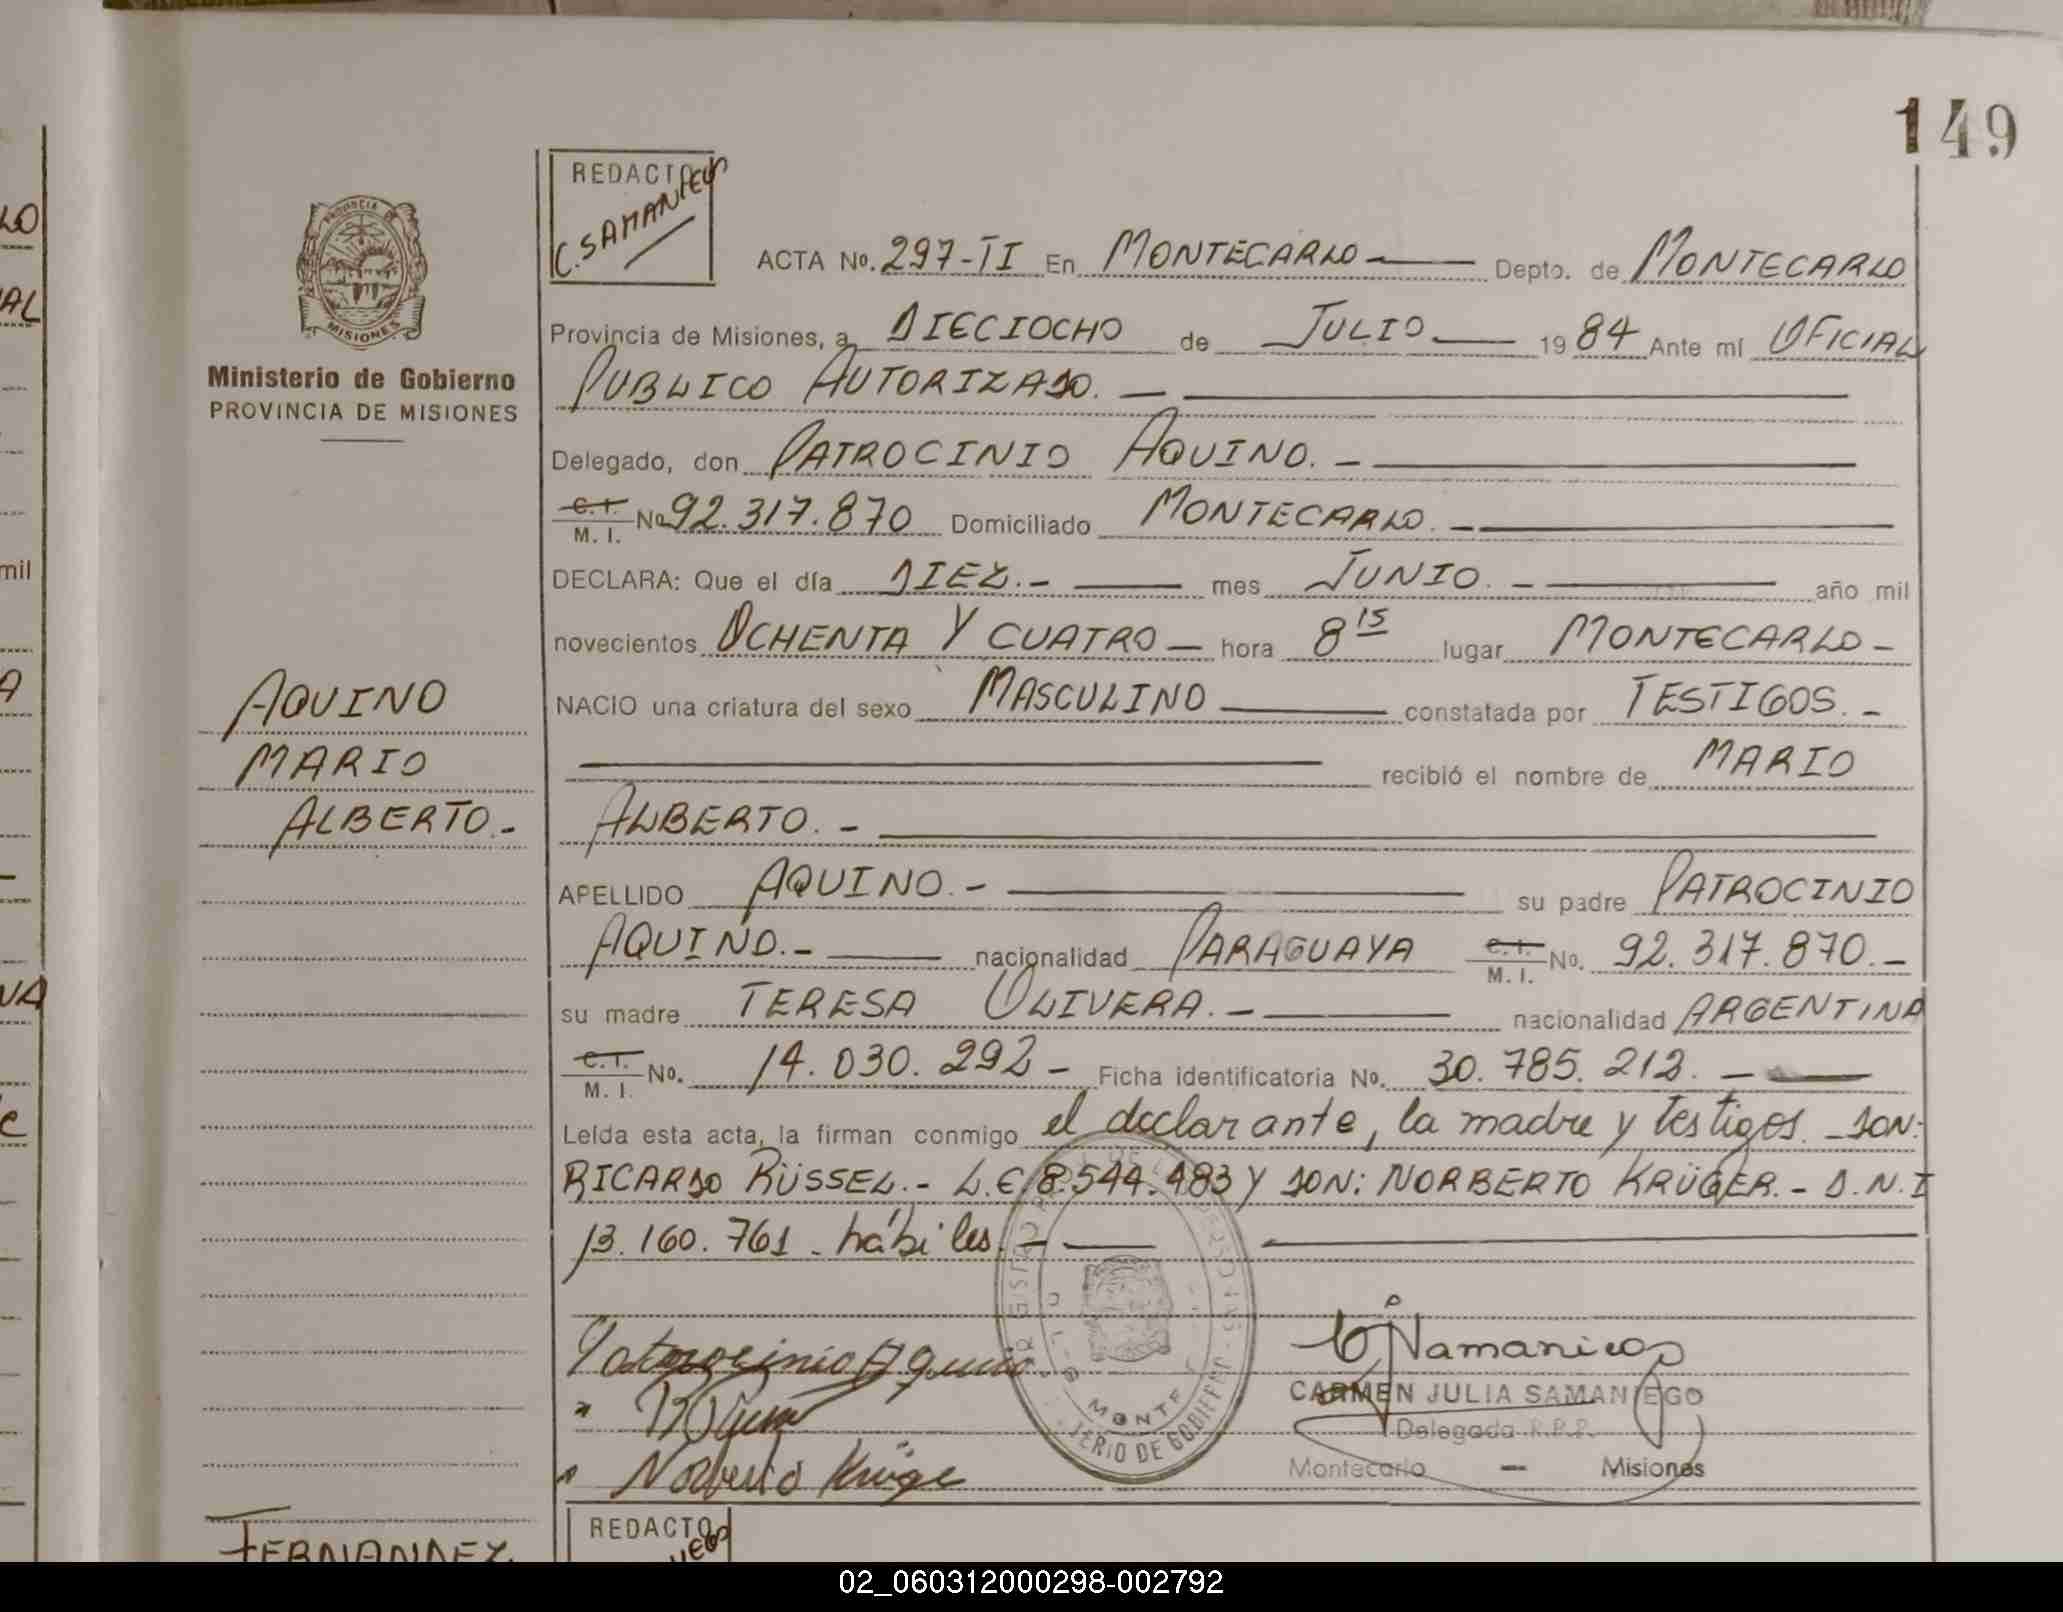 149
REDACTO
C. SAMANIEGO
PROVINCIA DE
MISIONES
Ministerio de Gobierno
PROVINCIA DE MISIONES
ACTA No. 297-II En MONTECARLO — Depto. de MONTECARLO
Provincia de Misiones, a DIECIOCHO de JULIO — 1984 Ante mí OFICIAL
PUBLICO AUTORIZADO. —
Delegado, don PATROCINIO AQUINO. —
C. I. / M. I. No 92.317.870 Domiciliado MONTECARLO. —
DECLARA: Que el día DIEZ.- — mes JUNIO. - — año mil
novecientos OCHENTA Y CUATRO — hora 8 15 lugar MONTECARLO -
NACIO una criatura del sexo MASCULINO — constatada por TESTIGOS. -
— recibió el nombre de MARIO
ALBERTO. - —
AQUINO
MARIO
ALBERTO.-
APELLIDO AQUINO.- — su padre PATROCINIO
AQUINO.- — nacionalidad PARAGUAYA C. I. / M. I. No. 92.317.870.-
su madre TERESA OLIVERA. - — nacionalidad ARGENTINA
C. I. / M. I. No. 14.030.292 - Ficha identificatoria No. 30.785.212. - —
Leída esta acta, la firman conmigo el declarante, la madre y testigos. - DON:
RICARDO RÜSSEL.- L.E. 8.544.483 Y DON: NORBERTO KRÜGER.- D.N.I
13.160.761. hábiles. - —
Patrocinio Aquino
Norberto Krüge
C J Samaniego
CARMEN JULIA SAMANIEGO
Delegada R.P.P.
Montecarlo — Misiones
FERNANDEZ
REDACTO
02_060312000298-002792